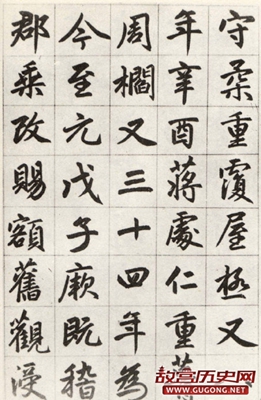 守桑重覆屋極又
年辛酉蔣處仁重
周櫩又三十四年為
今至元戊子厥既稽
郡乘改賜額舊觀浸
故宫历史网
WWW.GUGONG.NET